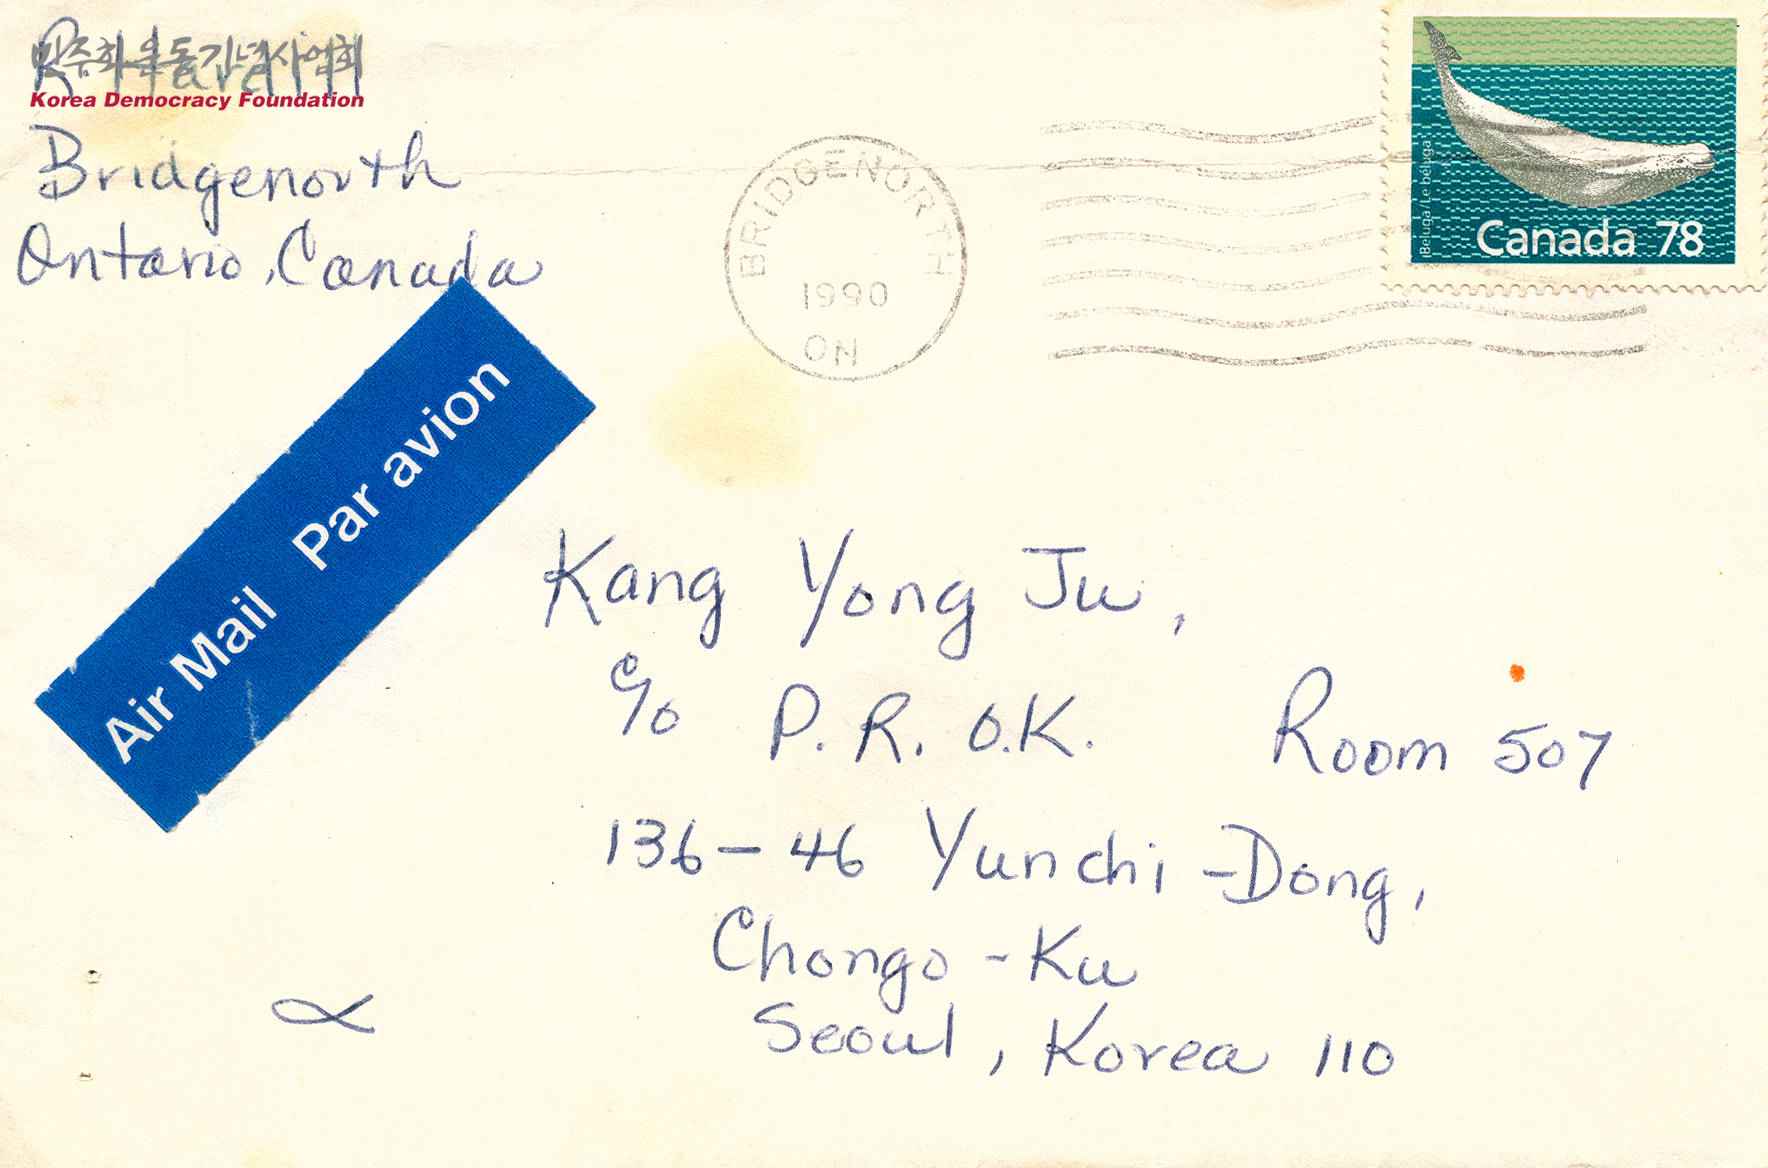 민주화운동기념사업회
Korea Democracy Foundation
Bridgenorth
Ontario, Canada
BRIDGENORTH
1990
ON
Beluga Le béluga
Canada 78
Air Mail Par avion
Kang Yong Ju,
c/o P. R. O.K. Room 507
136-46 Yunchi-Dong,
Chongo-Ku
Seoul, Korea 110